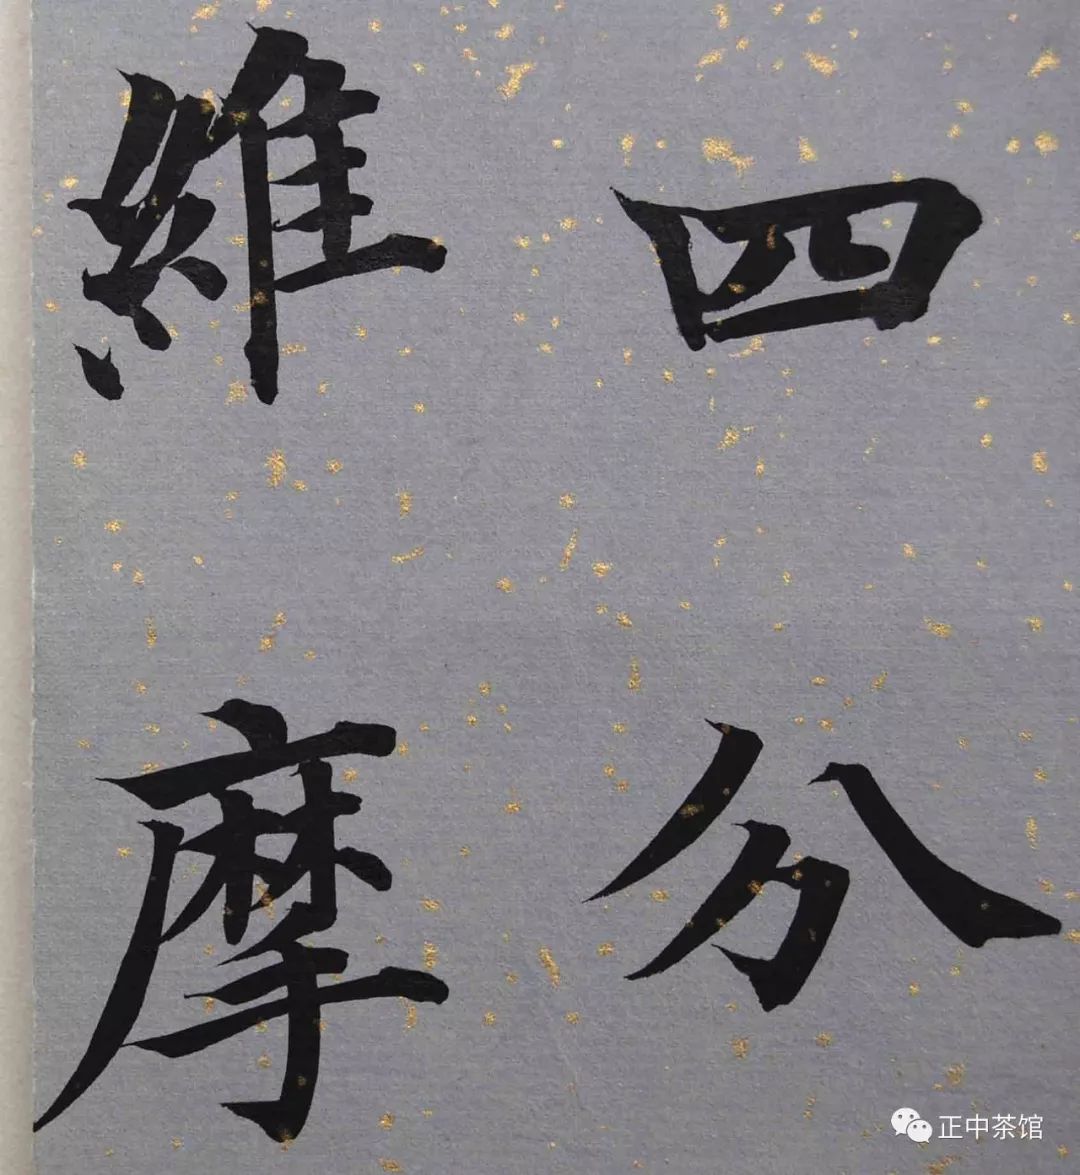 四分
維摩
正中茶馆